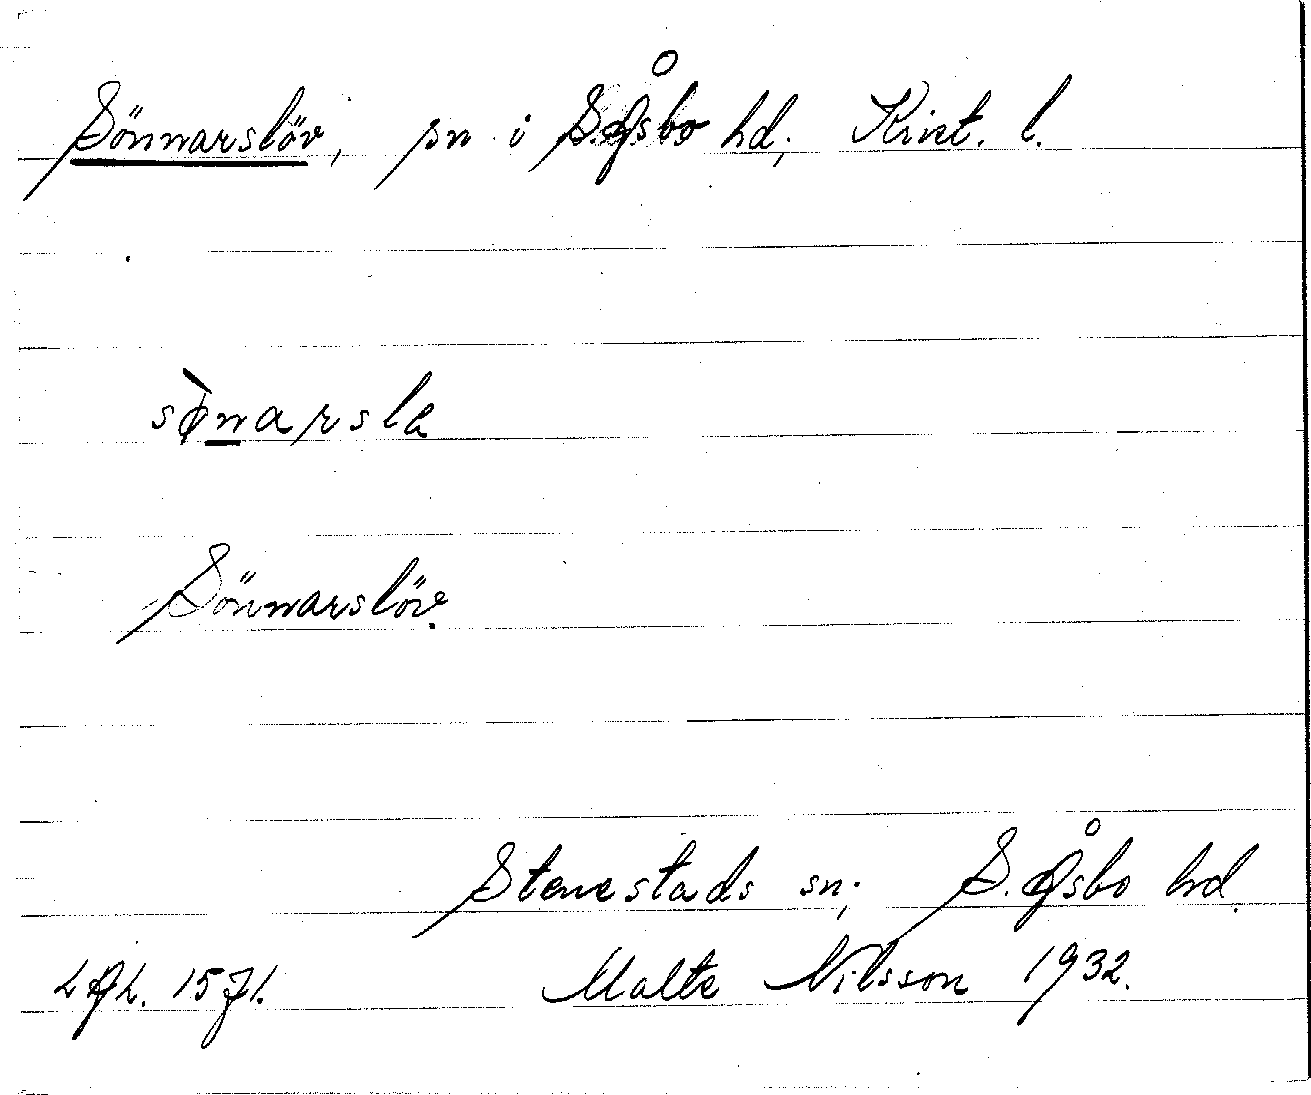 Sönnarslöv, sn i S. Åsbo hd, Krist. l.
sø̀narsla
Sönnarslöv.
Stenestads sn, S. Åsbo hd.
LAL. 1571. Malte Nilsson 1932.